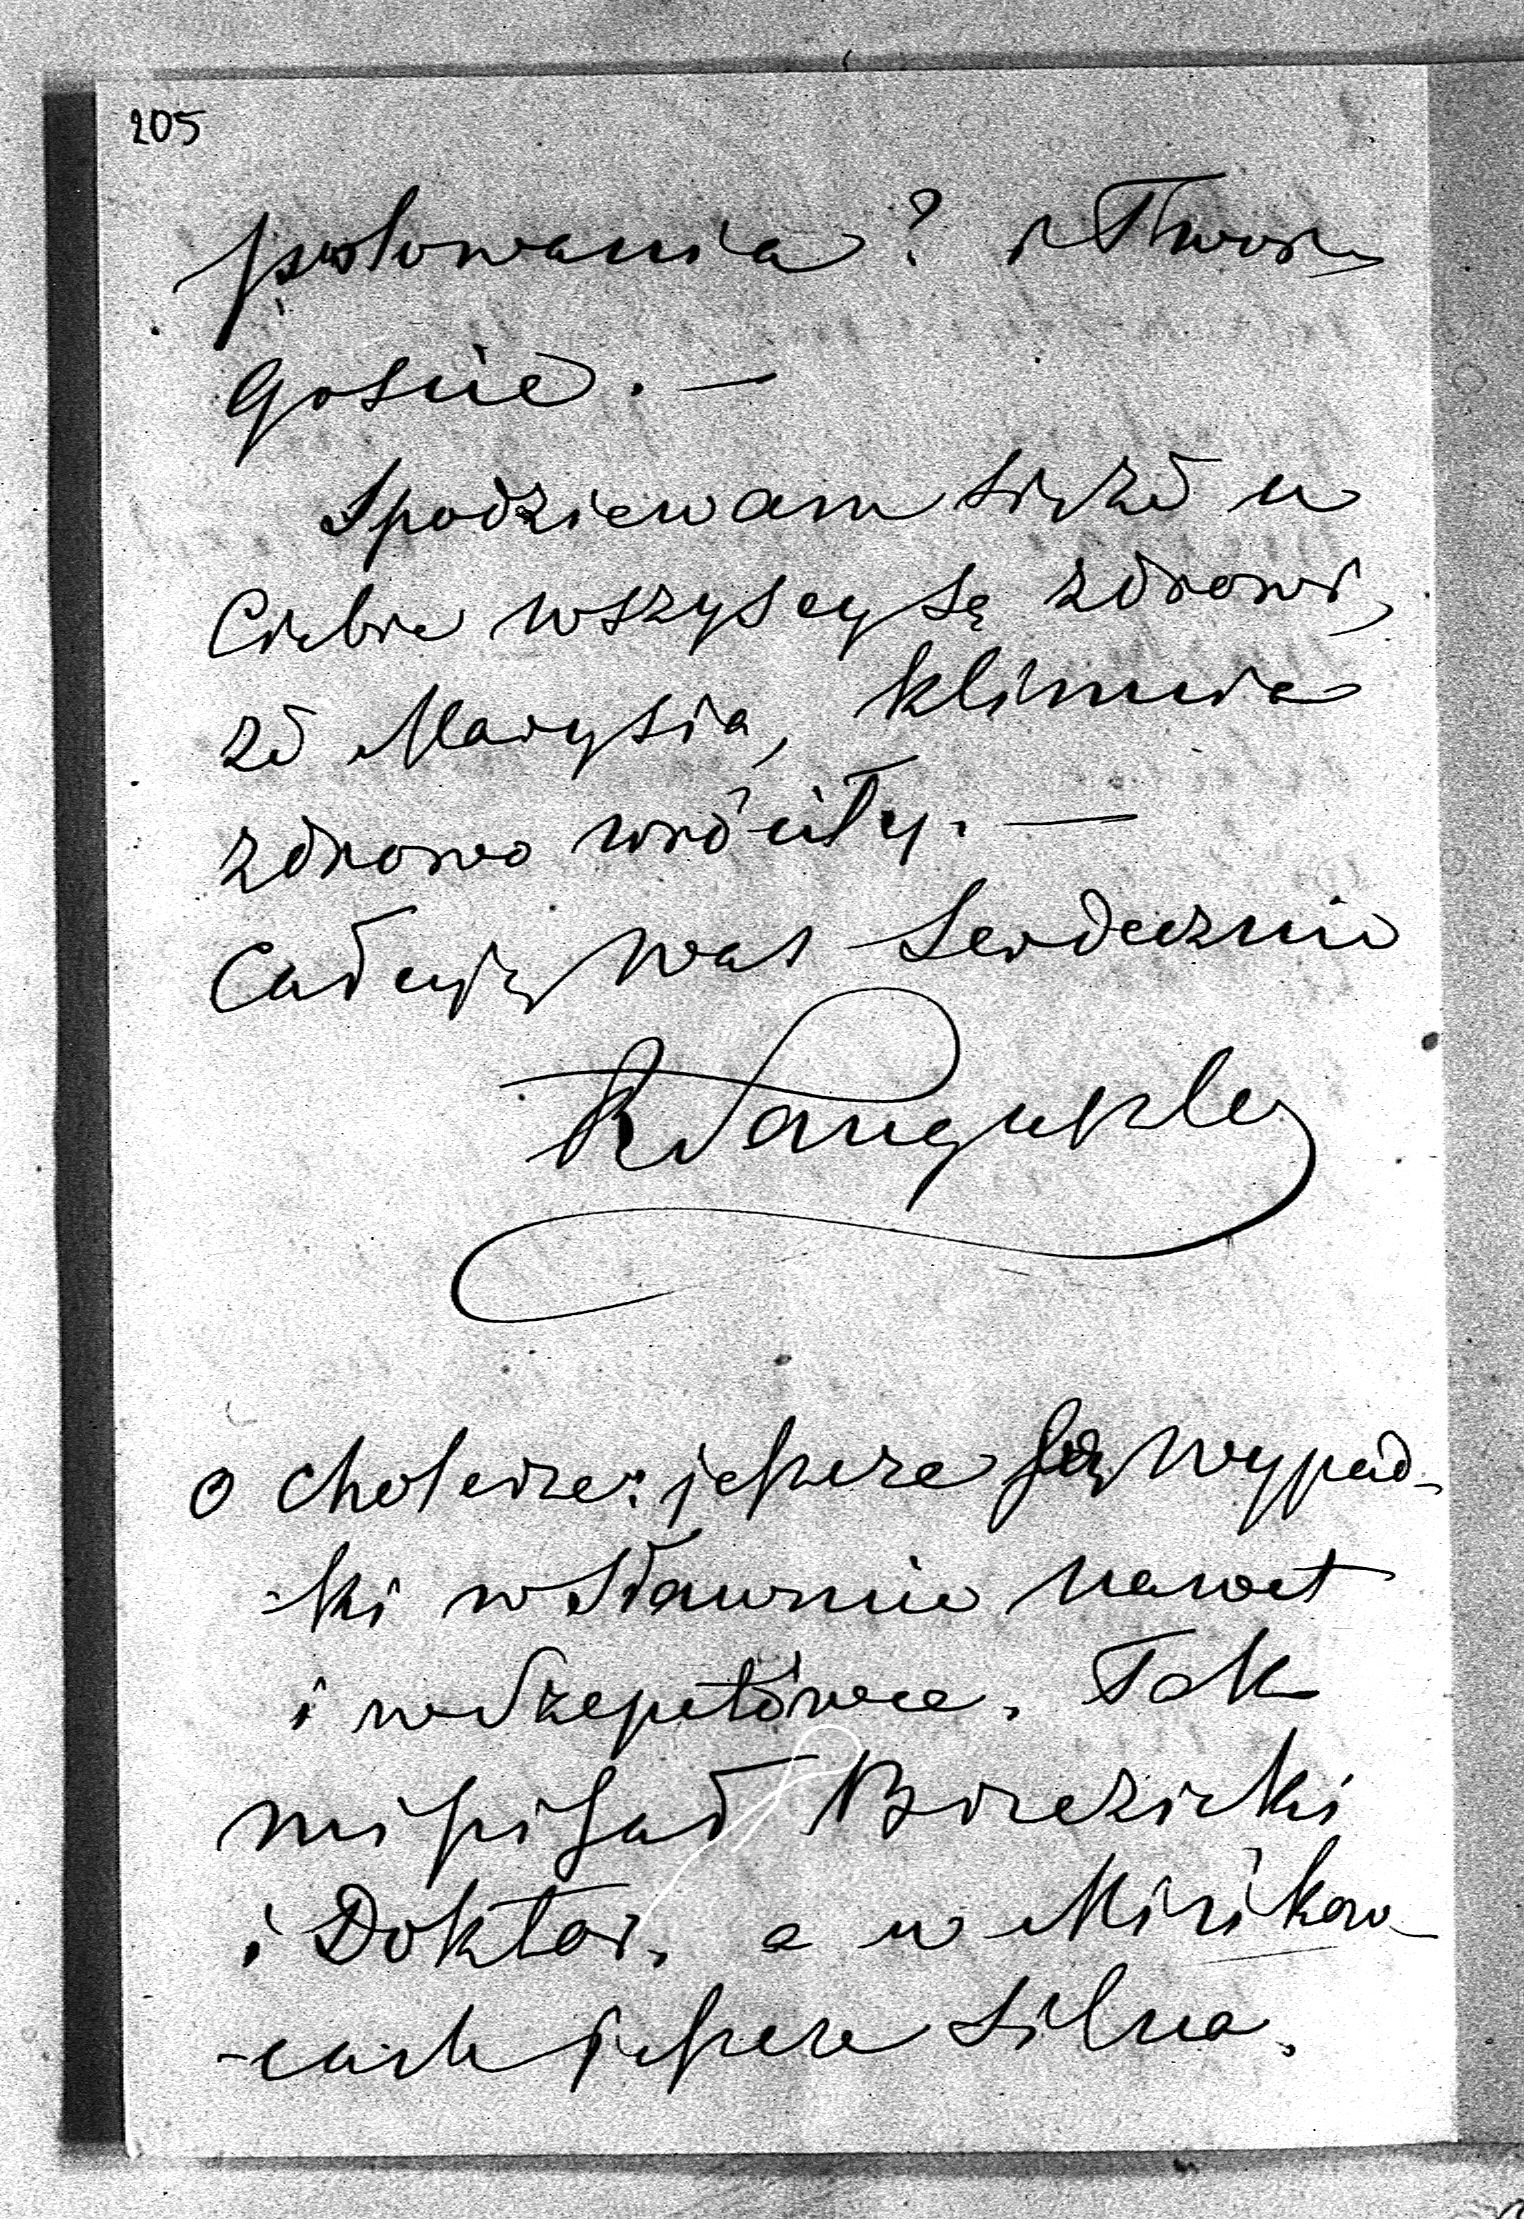 205
polowania? i Twoi
Goście. —
Spodziewam się że u
Ciebie wszyscy są zdrowi,
że Marysia, Klimcia
zdrowo wróciły. —
Całuję Was Serdecznie
RSanguszko
O cholerze: jeszcze są wypad-
-ki w Sławucie nawet
i w Szepetówce. Tak
mi pisał Brzezicki
i Doktor, a w Mińkow-
-cach jeszcze silna.